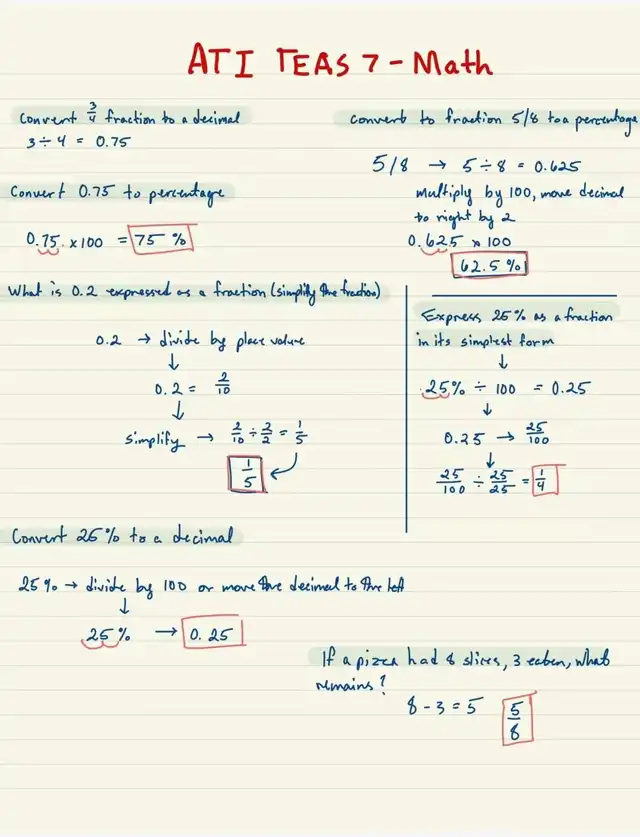 ATI TEAS 7 - Math
Convert 3/4 fraction to a decimal
3 ÷ 4 = 0.75
Convert 0.75 to percentage
0.75 × 100 = 75 %
Convert to fraction 5/8 to a percentage
5/8 → 5 ÷ 8 = 0.625
multiply by 100, move decimal
to right by 2
0.625 × 100
62.5 %
What is 0.2 expressed as a fraction (simplify the fraction)
0.2 → divide by place value
↓
0.2 = 2/10
↓
simplify → 2/10 ÷ 2/2 = 1/5
1/5
Express 25% as a fraction
in its simplest form
↓
25% ÷ 100 = 0.25
↓
0.25 → 25/100
↓
25/100 ÷ 25/25 = 1/4
Convert 25% to a decimal
25% → divide by 100 or move the decimal to the left
↓
25% → 0.25
If a pizza had 8 slices, 3 eaten, what
remains?
8 - 3 = 5 5/8